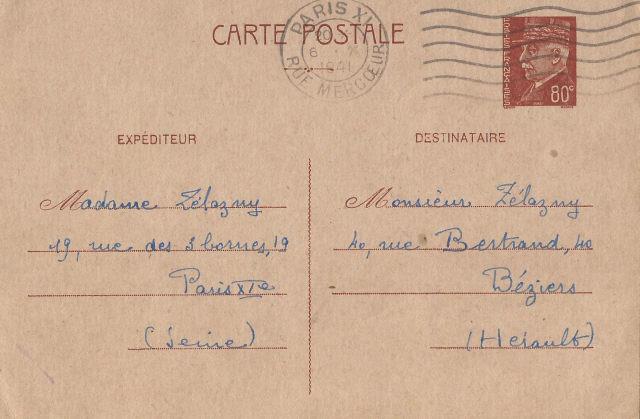 CARTE POSTALE
PARIS XI
1941
RUE MERCŒUR
80c
EXPÉDITEUR
Madame Zélazny
19, rue des 3 bornes, 19
Paris XIe
(Seine)
DESTINATAIRE
Monsieur Zélazny
40, rue Bertrand, 40
Béziers
(Hérault)